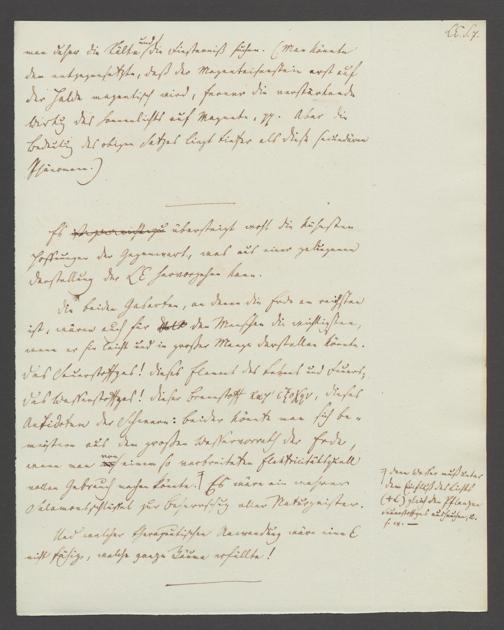 man daher die Kälte und die Finsterniß suchen. (Man könnte
dem entgegensetzen, daß der Magneteisenstein erst auf
der Halde magnetisch wird, ferner die verstärkende
Wirkg des Sonnenlichts auf Magnete, pp. Aber die
Bedeutg des obigen Satzes liegt tiefer als diese secundären
Phänomene.)
Es übersteigt wohl die kühnsten
Hoffnungen der Gegenwart, was aus einer gelungenen
Darstellung der hervorgehen kann.
Die beiden Gasarten, an denen die Erde am reichsten
ist, wären auch für den Menschen die wichtigsten,
wenn er sie leicht und in großer Menge darstellen könnte.
Das Sauerstoffgas! dieses Element des Lebens und Feuers,
das Wasserstoffgas! dieser Brennstoff κατ εξοχην, dieses
Antidoton der Schwere: beider könnte man sich be-
meistern aus dem großen Wasservorrath der Erde,
wenn man von einem so verbreiteten Elektricitätsquell
vollen Gebrauch machen könnte. Es wäre ein wahrer
Salamonsschlüssel zur Beherrschg aller Naturgeister.
Und welcher therapeutischen Anwendung wäre eine E
nicht fähig, welche ganze Räume erfüllte!
dem Wasser muß unter
dem Einfluß des Lichts
(+E) gleich den Pflanzen
Sauerstoffgas aushauchen,